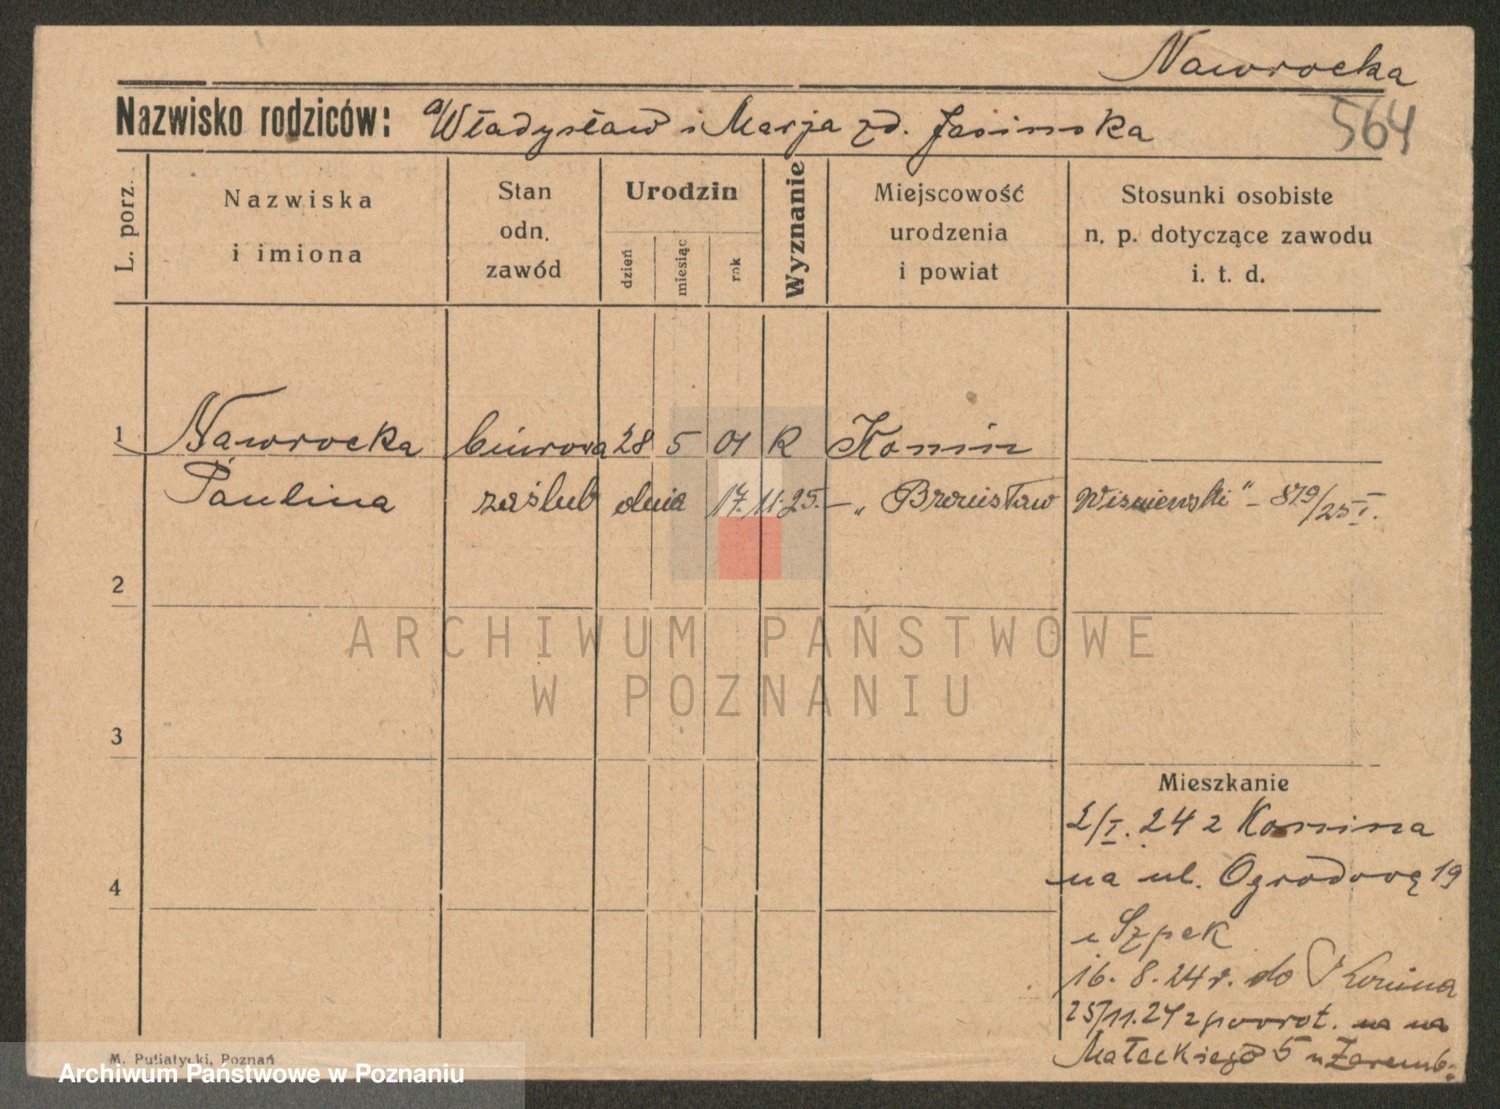 Nawrocka
564
Nazwisko rodziców: Władysław i Marja zd. Jasinska
L. porz.
Nazwiska
i imiona
Stan
odn.
zawód
Urodzin
dzień
miesiąc
rok
Wyznanie
Miejscowość
urodzenia
i powiat
Stosunki osobiste
n. p. dotyczące zawodu
i. t. d.
1 Nawrocka biurowa 28 5 01 K Konin
Paulina zaślub dnia 17.11.25. – „Bronisław Wiśniewski" – 879/25 I.
2
3
4
Mieszkanie
2/I. 24 z Konina
na ul. Ogrodową 19
u Szpek
16. 8. 24 r. do Konina
25/11.24 z powrot. na
Małeckiego 5 u Zaremb.
M. Putiatycki, Poznań
ARCHIWUM PAŃSTWOWE
W POZNANIU
Archiwum Państwowe w Poznaniu